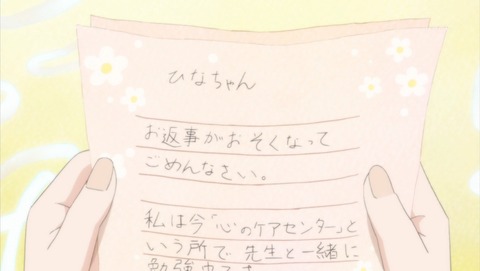 ひなちゃん
お返事がおそくなって
ごめんなさい。
私は今「心のケアセンター」と
いう所で先生と一緒に
勉強中です